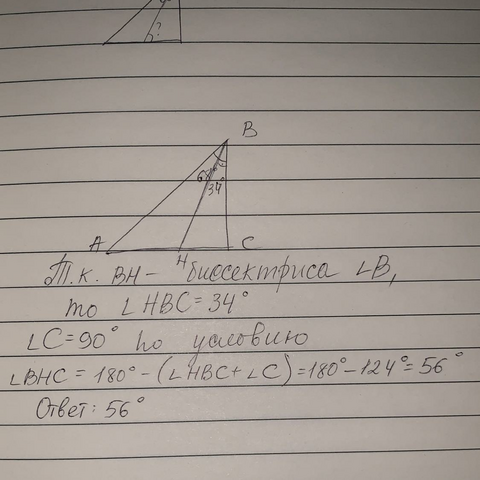 ?
B
68°
34°
A
H
C
Т.к. BH - биссектриса ∠B,
то ∠HBC = 34°
∠C=90° по условию
∠BHC = 180° - (∠HBC + ∠C) = 180° - 124° = 56°
Ответ: 56°